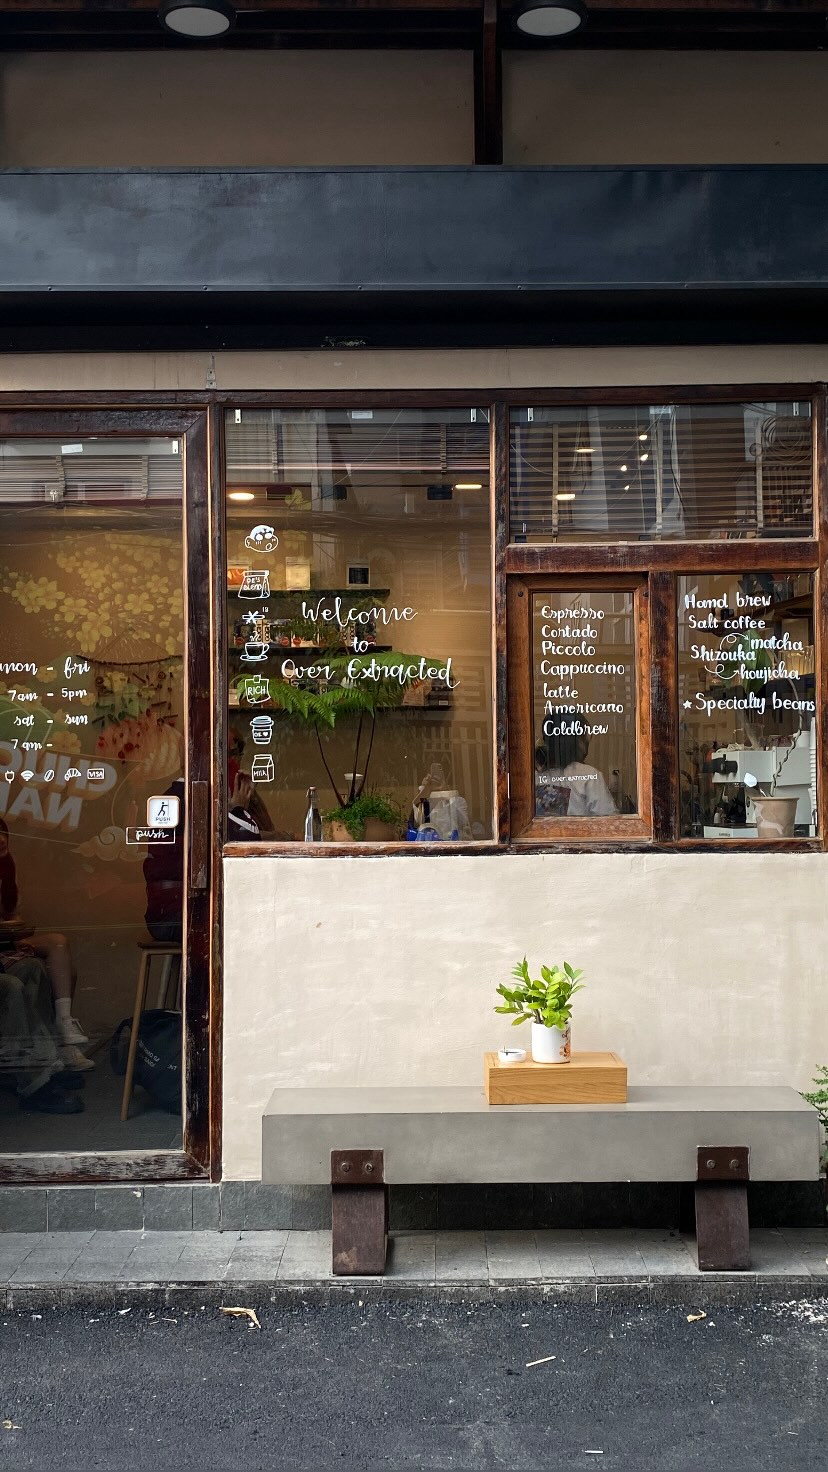 mon - fri
7am - 5pm
sat - sun
7am -
VISA
PUSH
push
BLEND
RICH
MILK
Welcome
to
Over Extracted
Espresso
Cortado
Piccolo
Cappuccino
latte
Americano
Coldbrew
IG over extracted
Hand brew
Salt coffee
matcha
Shizouka
houjicha
★ Specialty beans